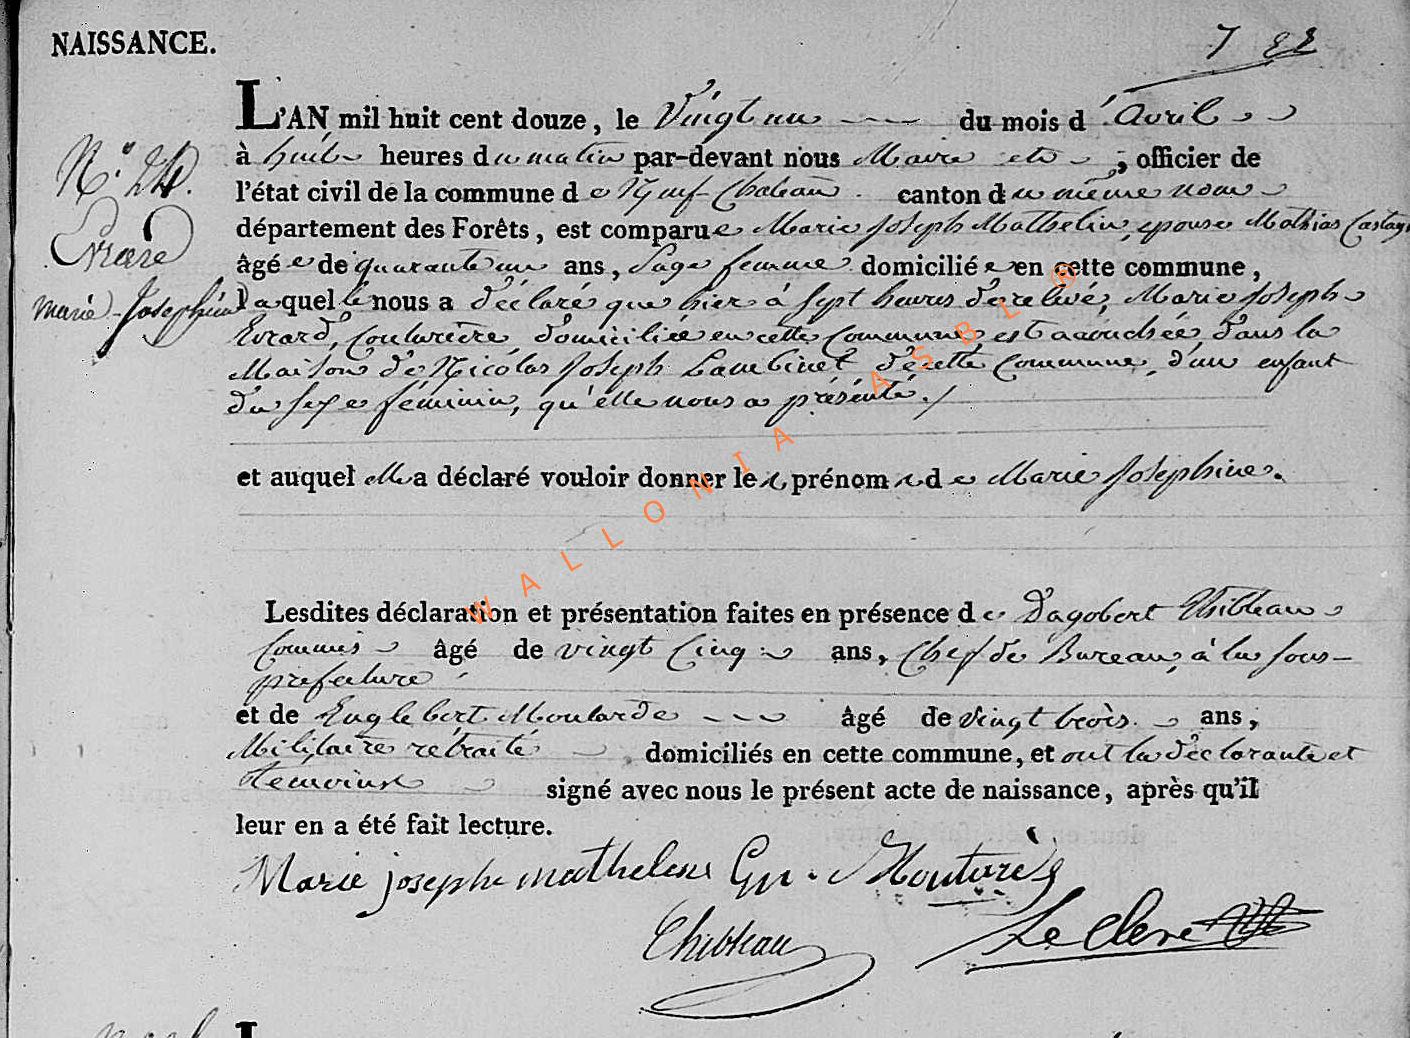 NAISSANCE.
L'AN mil huit cent douze, le Vingt un du mois d'Avril
à huit heures du matin par-devant nous Maire etc ; officier de
l'état civil de la commune de Neuf-Chateau canton du même nom
département des Forêts, est comparue Marie Joseph Mathelin, epouse Mathias Castagn
âgée de quarante un ans, Sage femme domiciliée en cette commune,
laquelle nous a déclaré que hier à sept heures de relevée, Marie Joseph
Evrard, Couturière, domiciliée en cette Commune, est accouchée, dans la
Maison de Nicolas Joseph Lambinet de cette Commune, d'un enfant
du sexe féminin, qu'elle nous a présenté./
et auquel elle a déclaré vouloir donner les prénoms de Marie Josephine.
Lesdites déclaration et présentation faites en présence de Dagobert Thibleau
Commis âgé de vingt Cinq ans, Chef de Bureau, à la sous-
prefecture
et de Englebert Moutarde âgé de vingt trois ans,
Militaire rétraité domiciliés en cette commune, et ont la déclarante et
temoins signé avec nous le présent acte de naissance, après qu'il
leur en a été fait lecture.
N.° 24.
Evrard
Marie-Josephine
Marie josephe mathelin
Thibleau
Le Clerc
WALLONIA ASBL ®